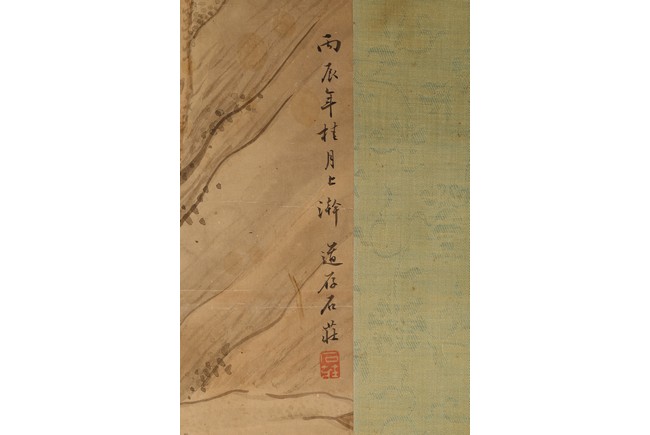 丙辰年桂月上澣 道存石莊
石莊